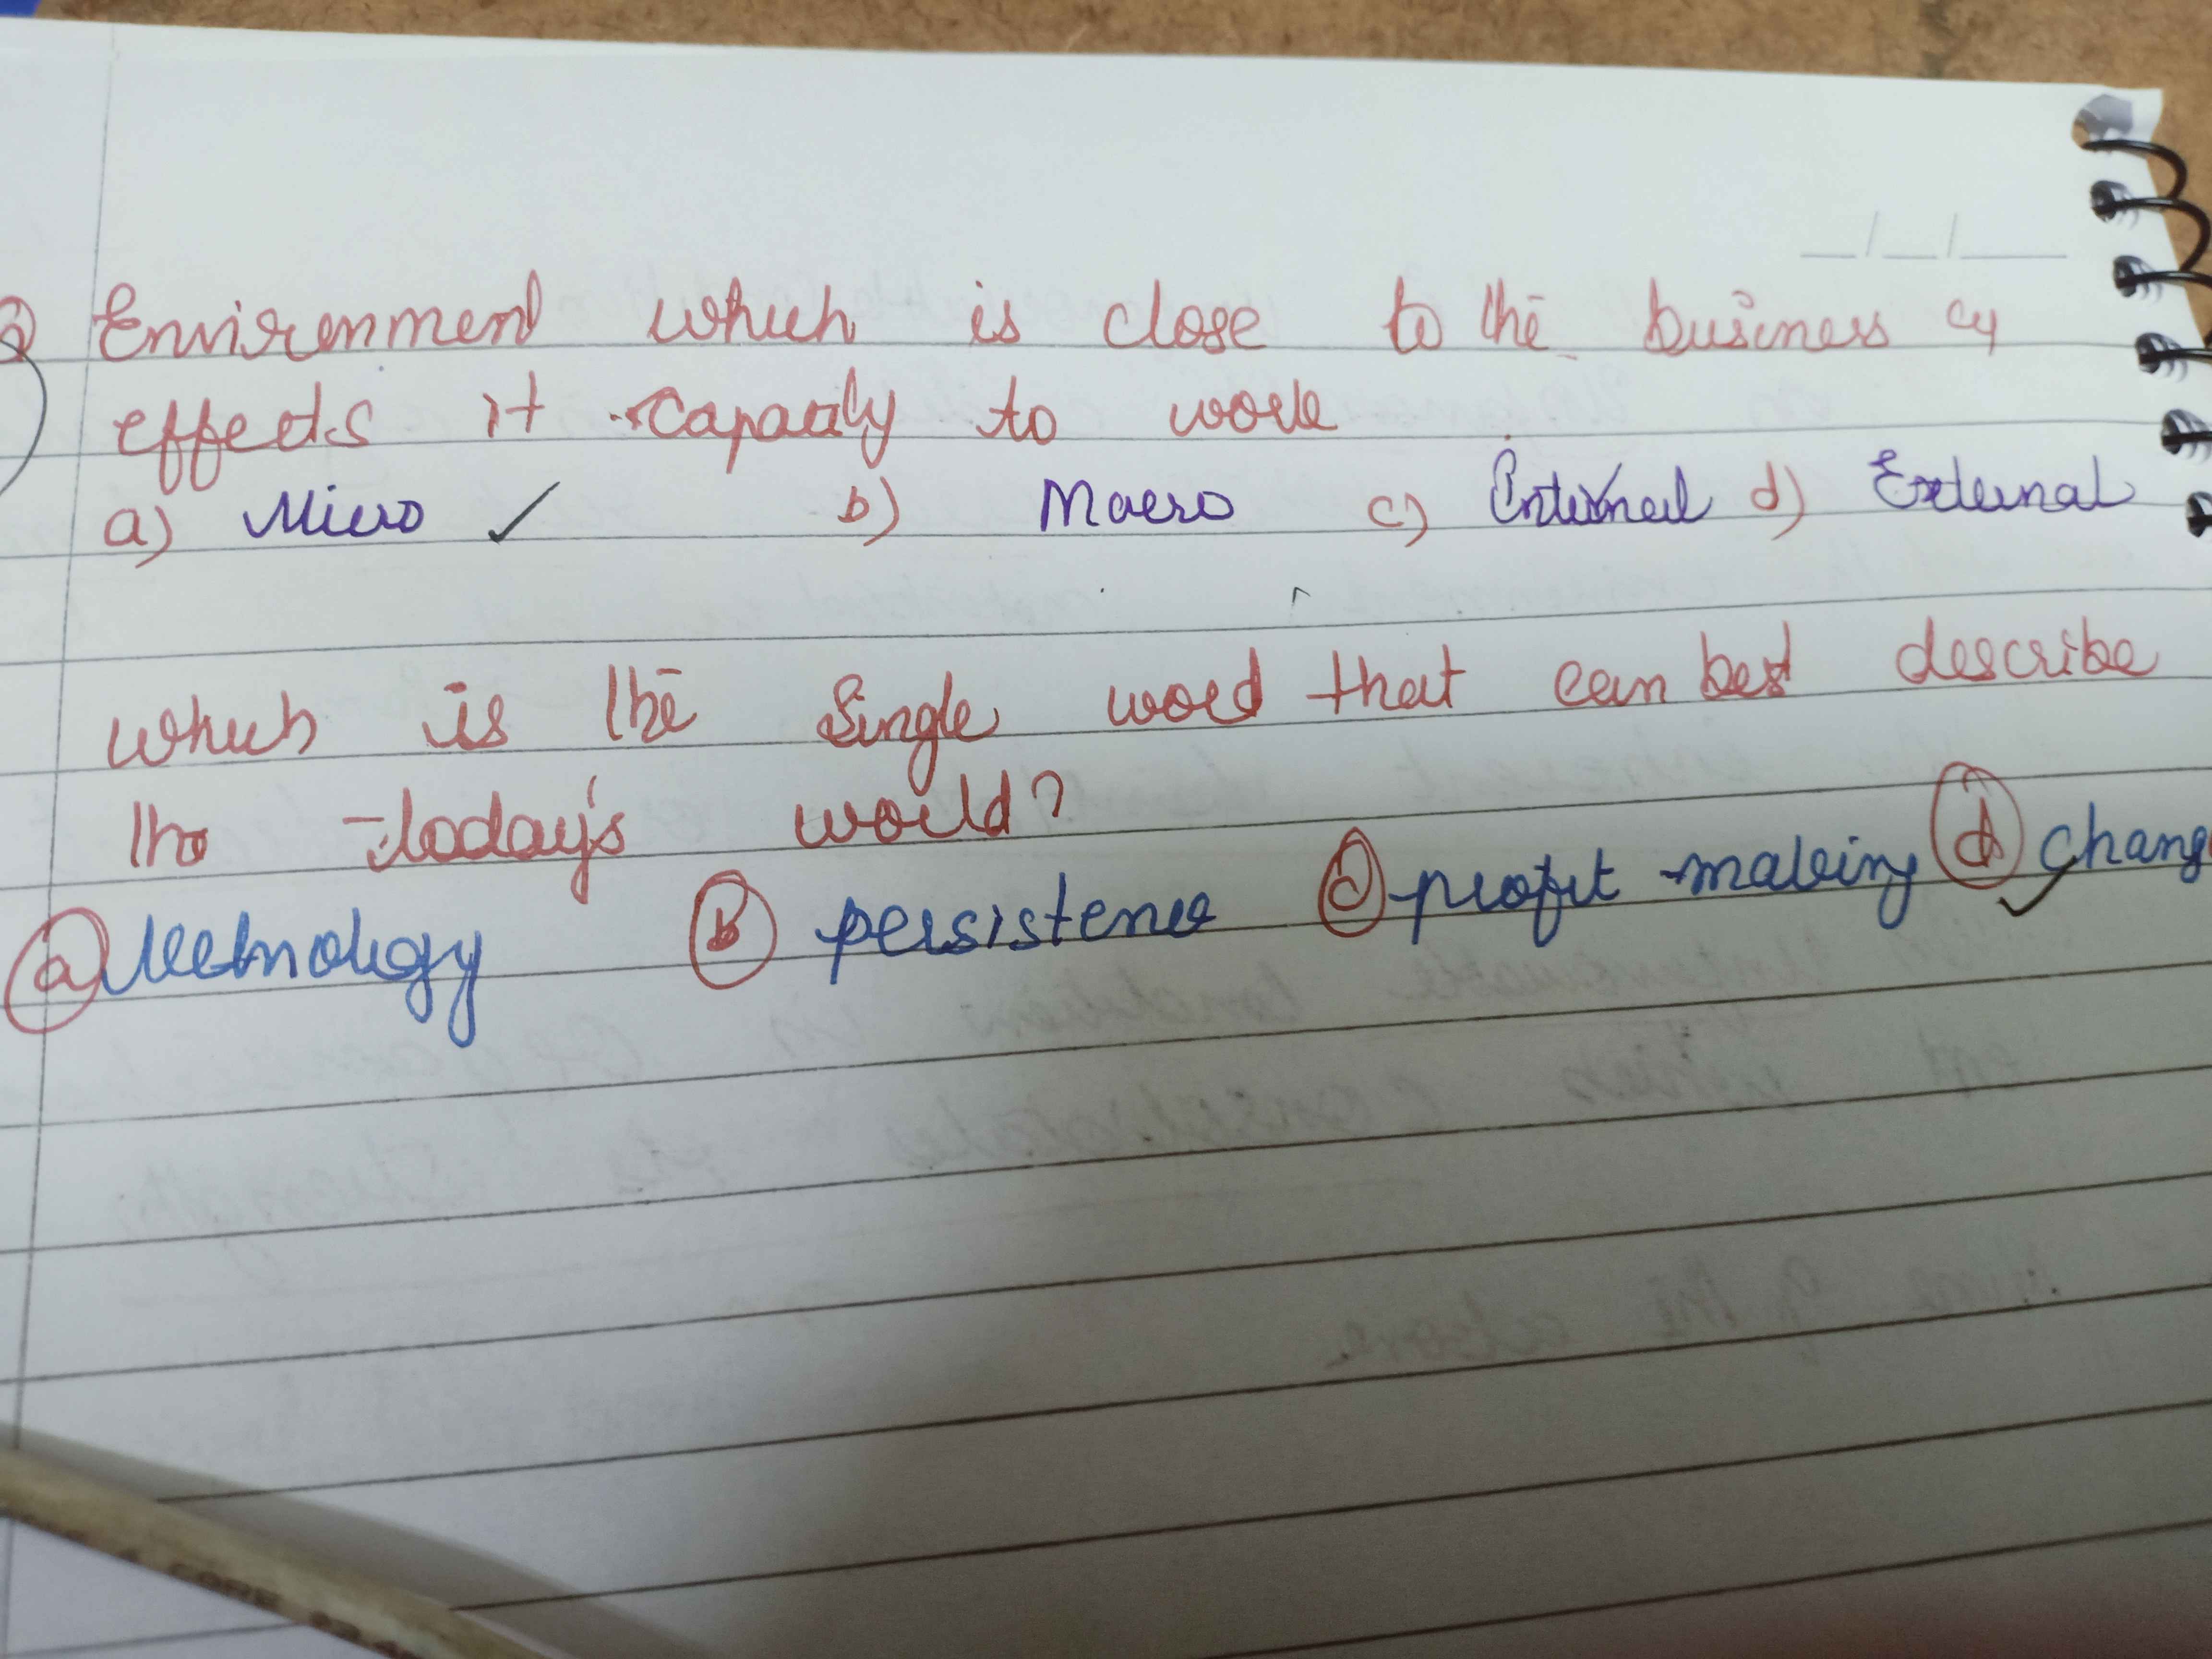 Environment which is close to the business cy
effects it capacity to work
a) Micro ✓ b) Macro c) Internal d) External
which is the Single word that can best describe
the today's world?
a technology b persistence c profit making d chang